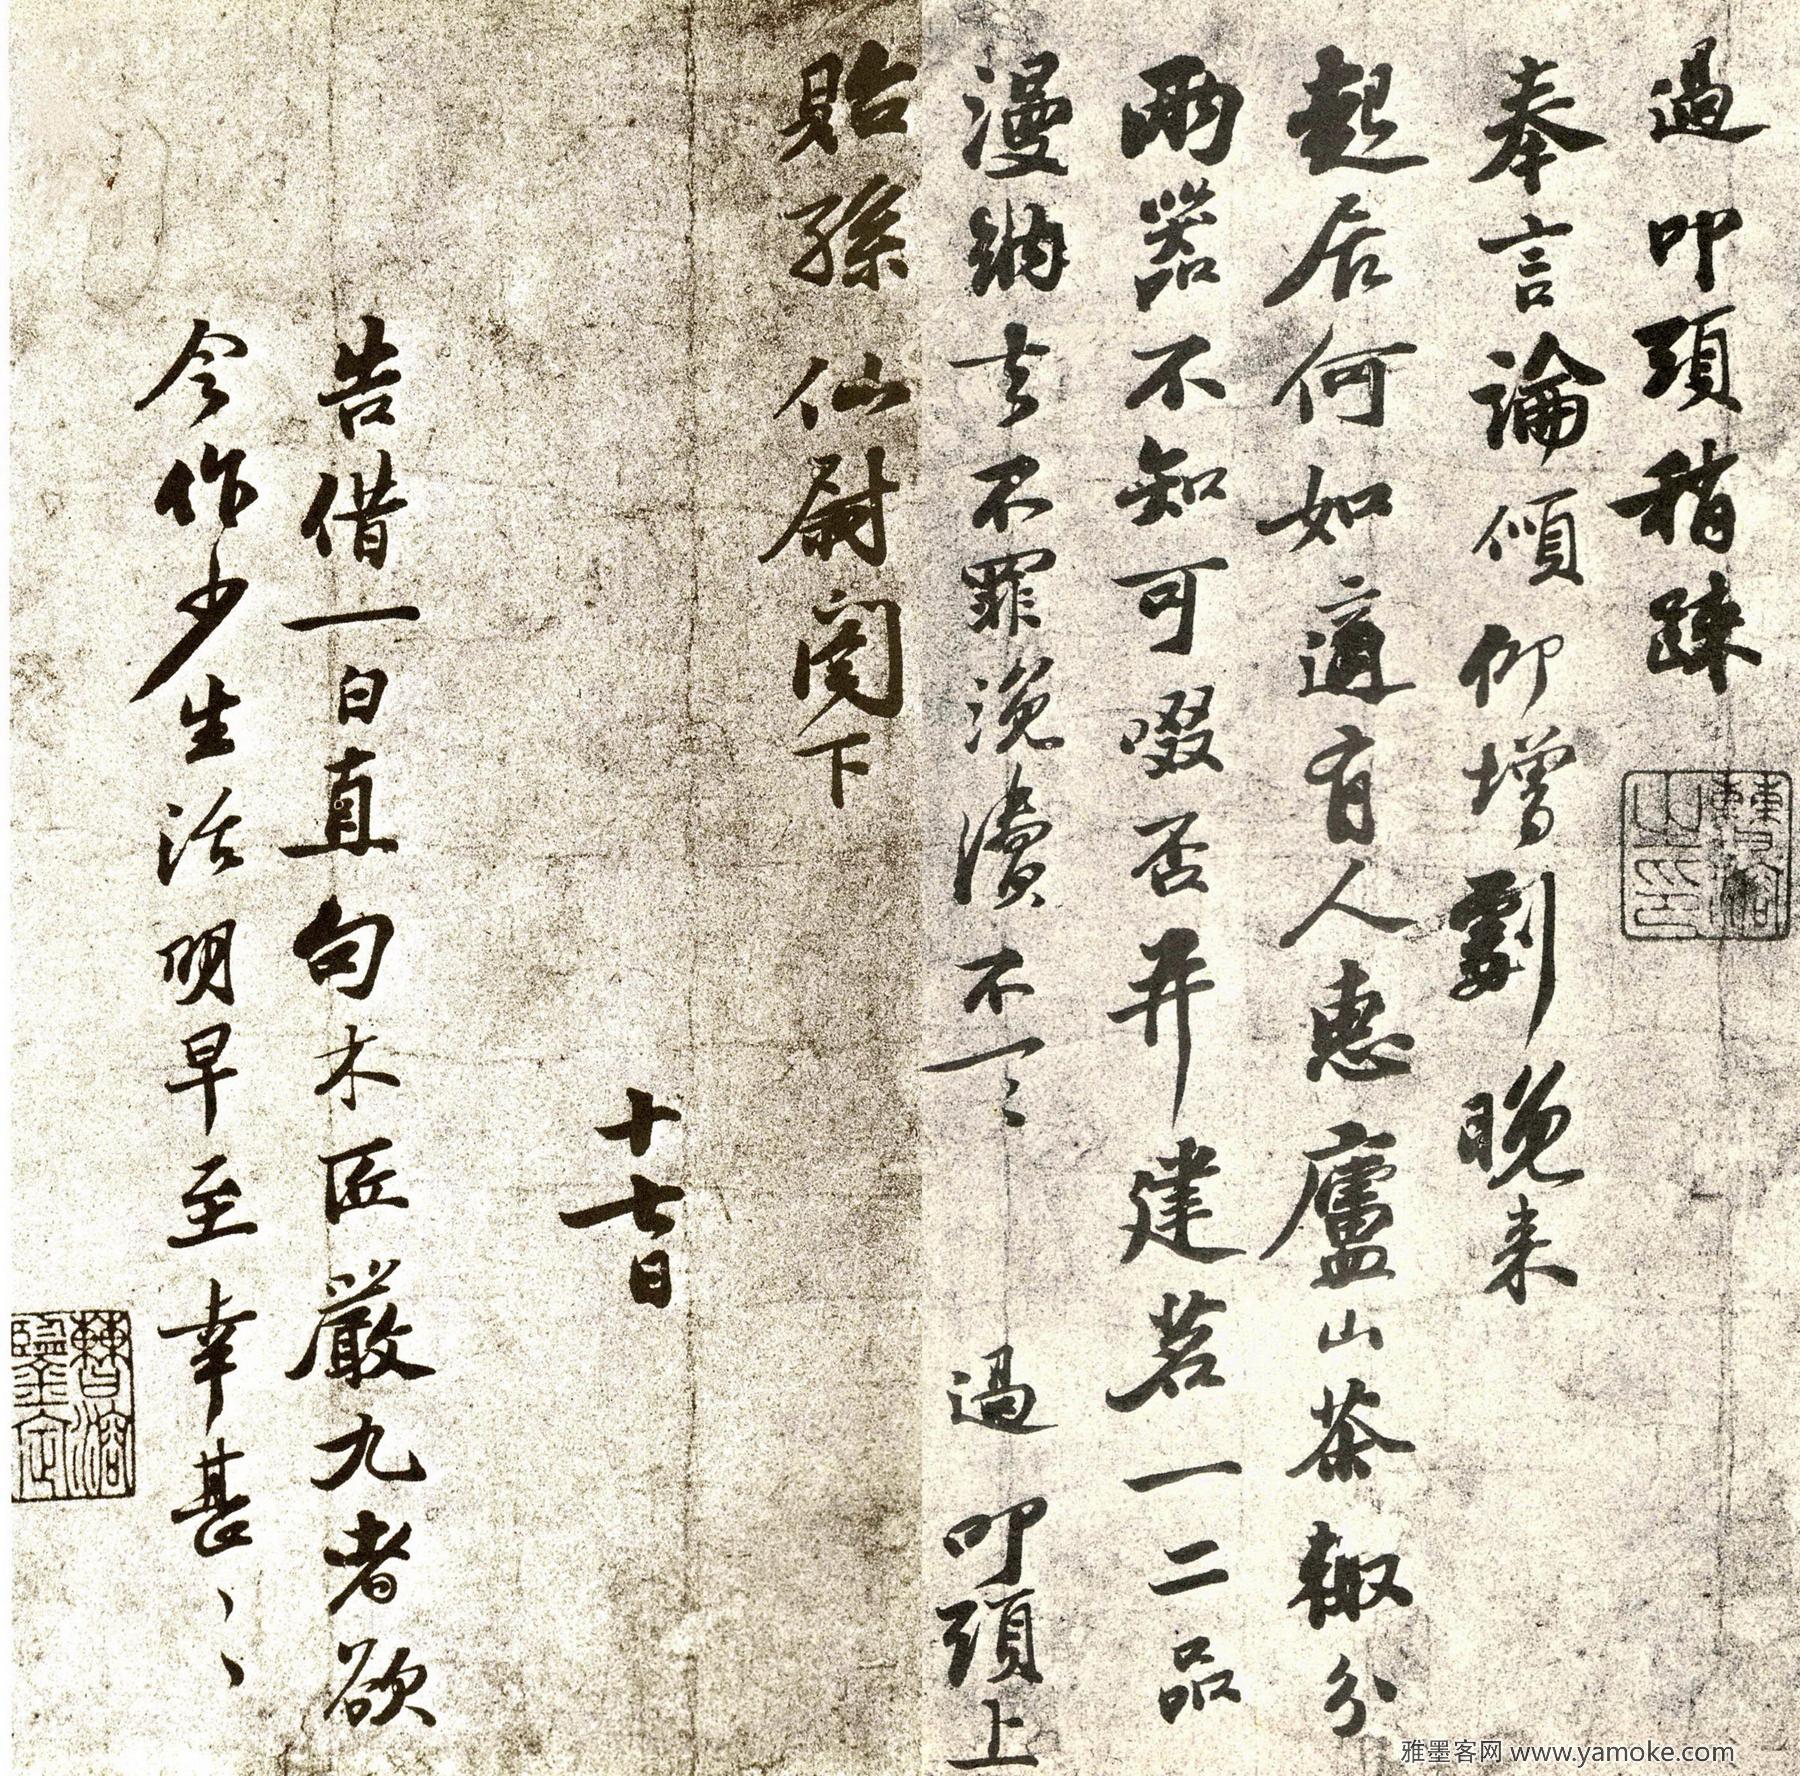 過叩頭稍疎
奉言論傾仰增劇晚来
起居何如適有人惠廬山茶輙分
兩器不知可啜否并建茗一二品
漫納去不罪浼瀆不一一 過叩頭上
貽孫仙尉閤下
十七日
告借一白直句木匠嚴九者欲
令作少生活明早至幸甚〻
雅墨客网 www.yamoke.com